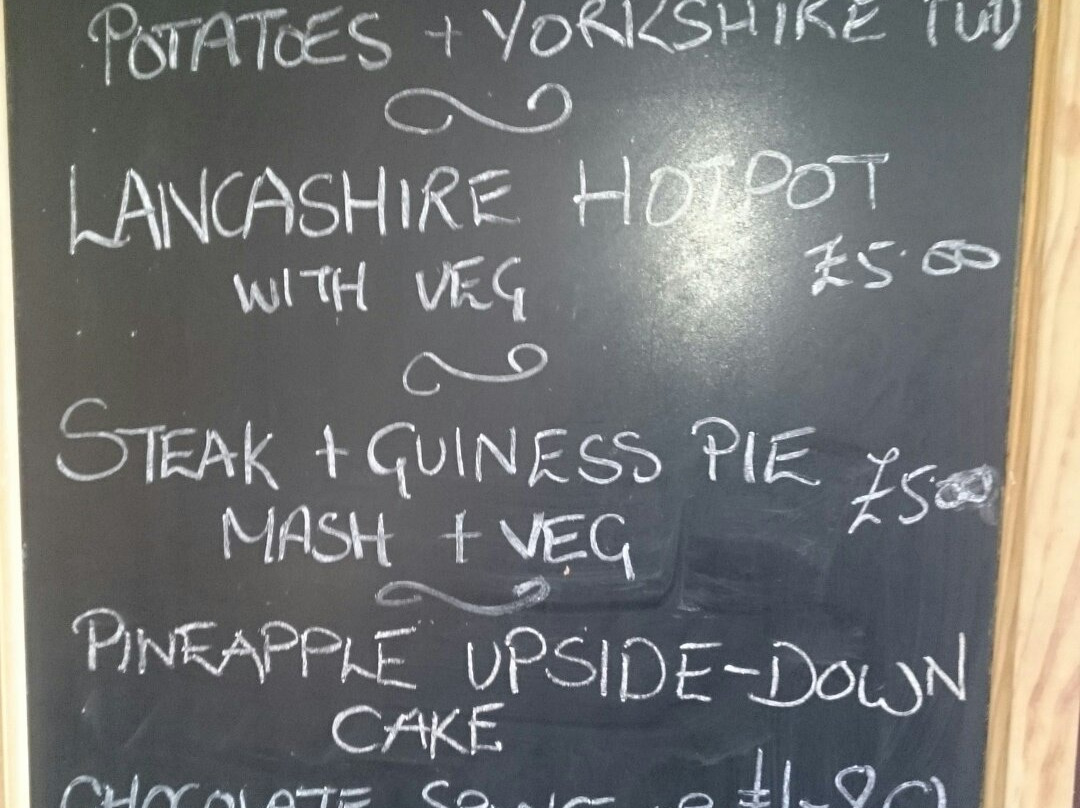 POTATOES + YORKSHIRE PUD
LANCASHIRE HOTPOT
WITH VEG £5.00
STEAK + GUINESS PIE £5.00
MASH + VEG
PINEAPPLE UPSIDE-DOWN
CAKE
CHOCOLATE SPONGE £1.80